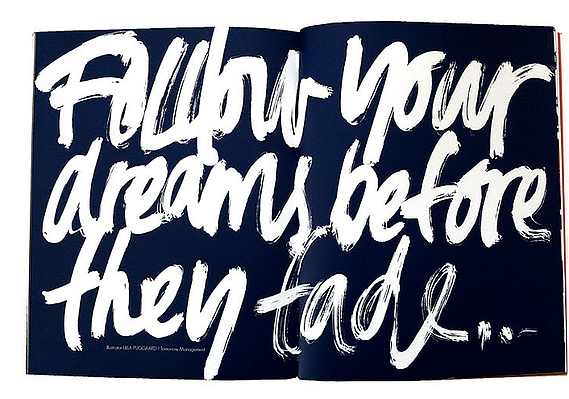 Follow your
dreams before
they fade...
Illustrator LELA PUGGAARD / Tomorrow Management